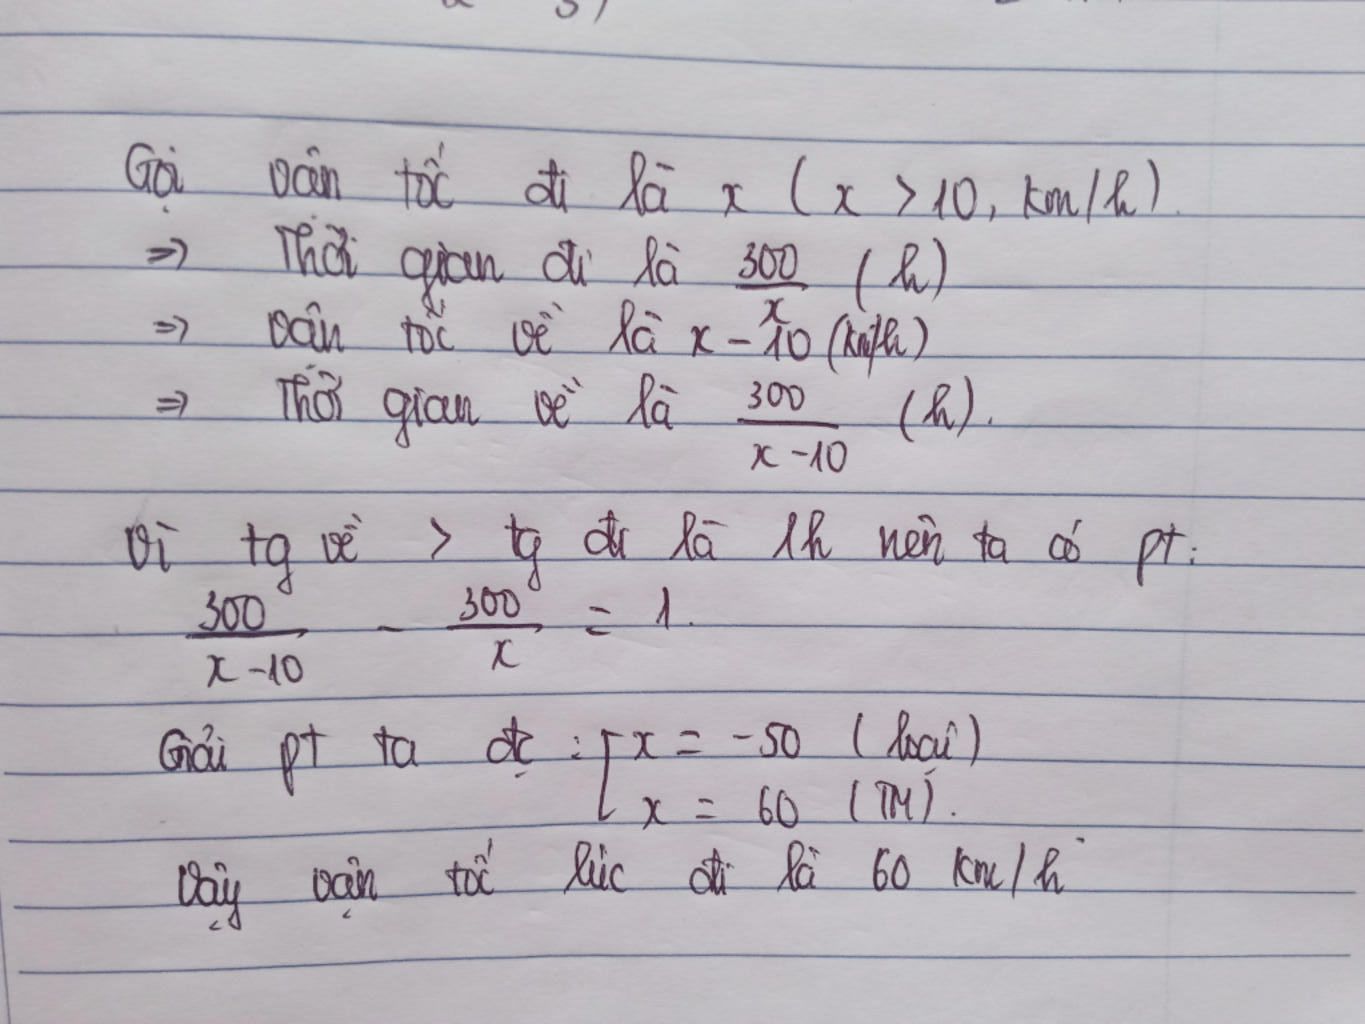 Gọi vận tốc đi là x ( x > 10, km/h).
=> Thời gian đi là 300/x (h)
=> vận tốc về là x - 10 (km/h)
=> Thời gian về là 300/(x-10) (h).
Vì tg về > tg đi là 1h nên ta có pt:
300/(x-10) - 300/x = 1.
Giải pt ta đc : [ x = -50 (loại)
x = 60 (TM).
Vậy vận tốc lúc đi là 60 km/h